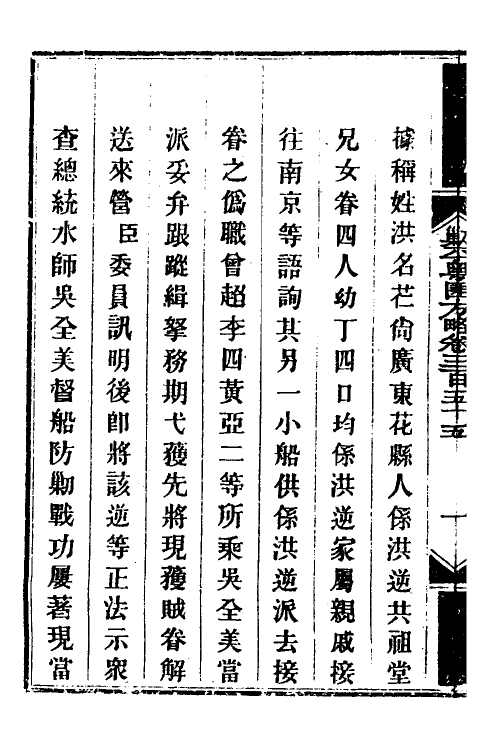 據稱姓洪名芒尙廣東花縣人係洪逆共祖堂
兄女眷四人幼丁四口均係洪逆家屬親戚接
往南京等語詢其另一小船供係洪逆派去接
眷之僞職曾超李四黃亞二等所乘吳全美當
派妥弁跟蹤緝拏務期弋獲先將現獲賊眷解
送來營臣委員訊明後卽將該逆等正法示衆
查總統水師吳全美督船防勦戰功屢著現當
匪方略卷三百五十五
一